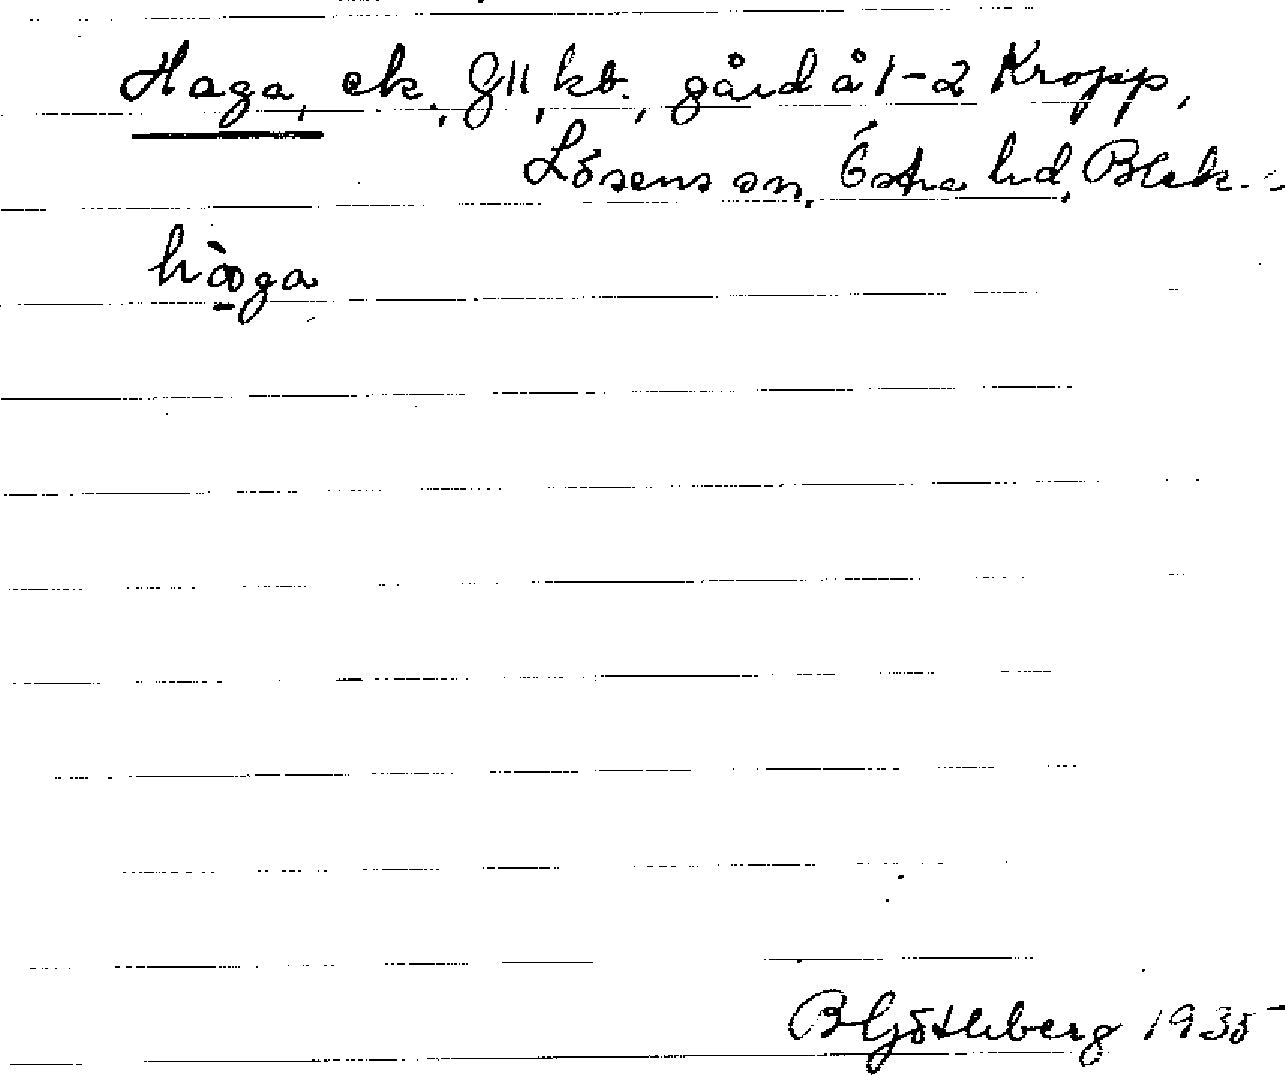 Haga, ek., GII, kb., gård å 1-2 Kropp,
Lösens sn, Östra hd, Blek.
Bl Götlberg 1935